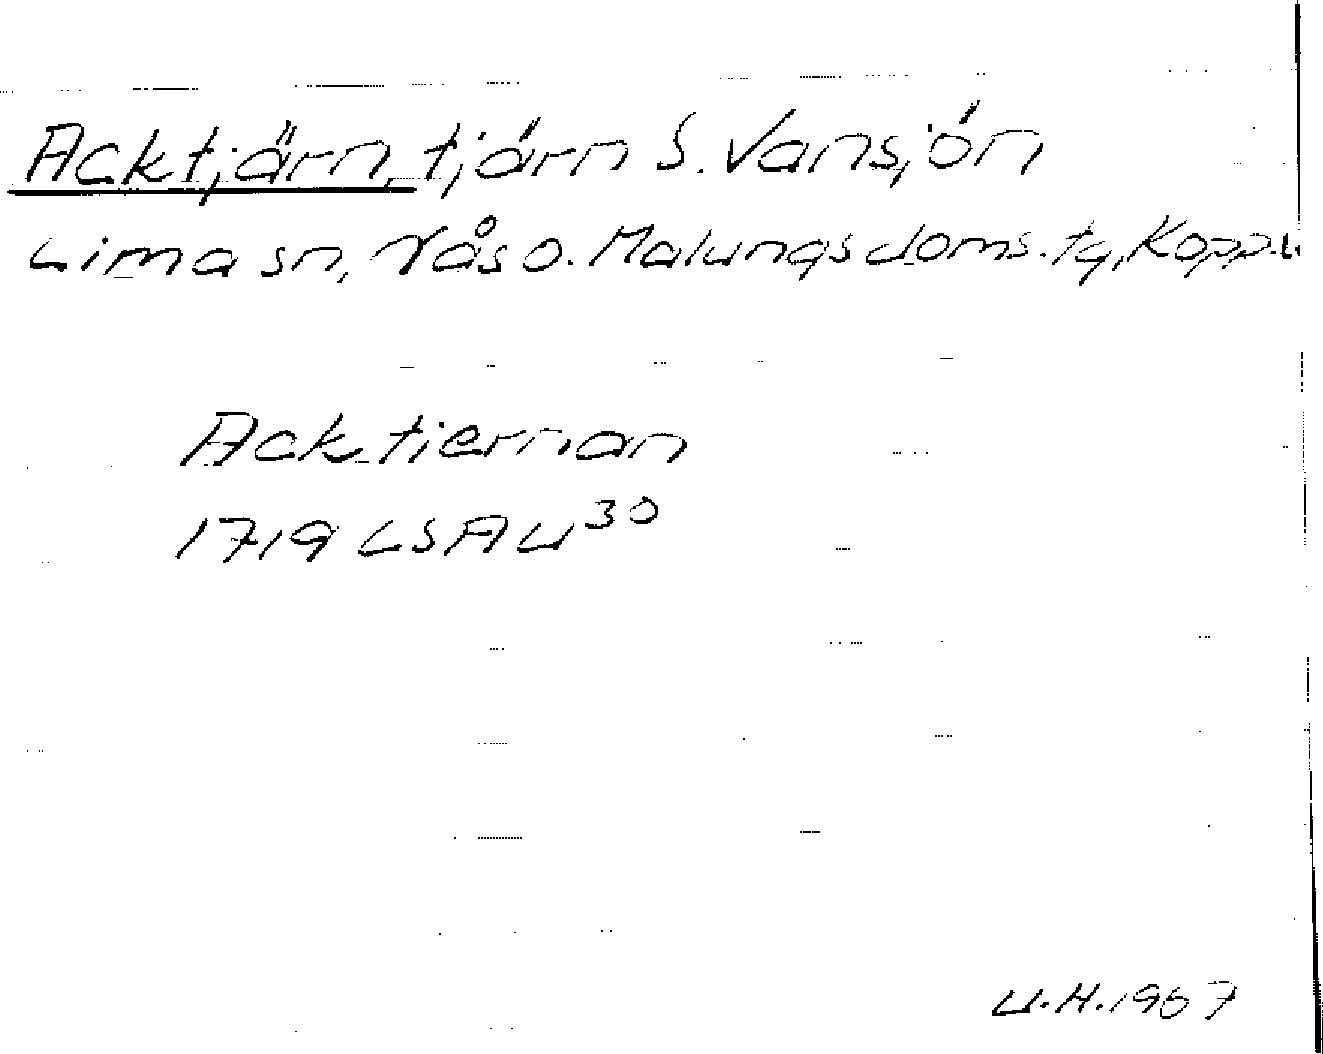 Acktjärn, tjärn S. Vansjön
Lima sn, Nås o. Malungs doms. tg, Kopp. l.
Acktiernan
1719 LSA U30
U.H. 1967